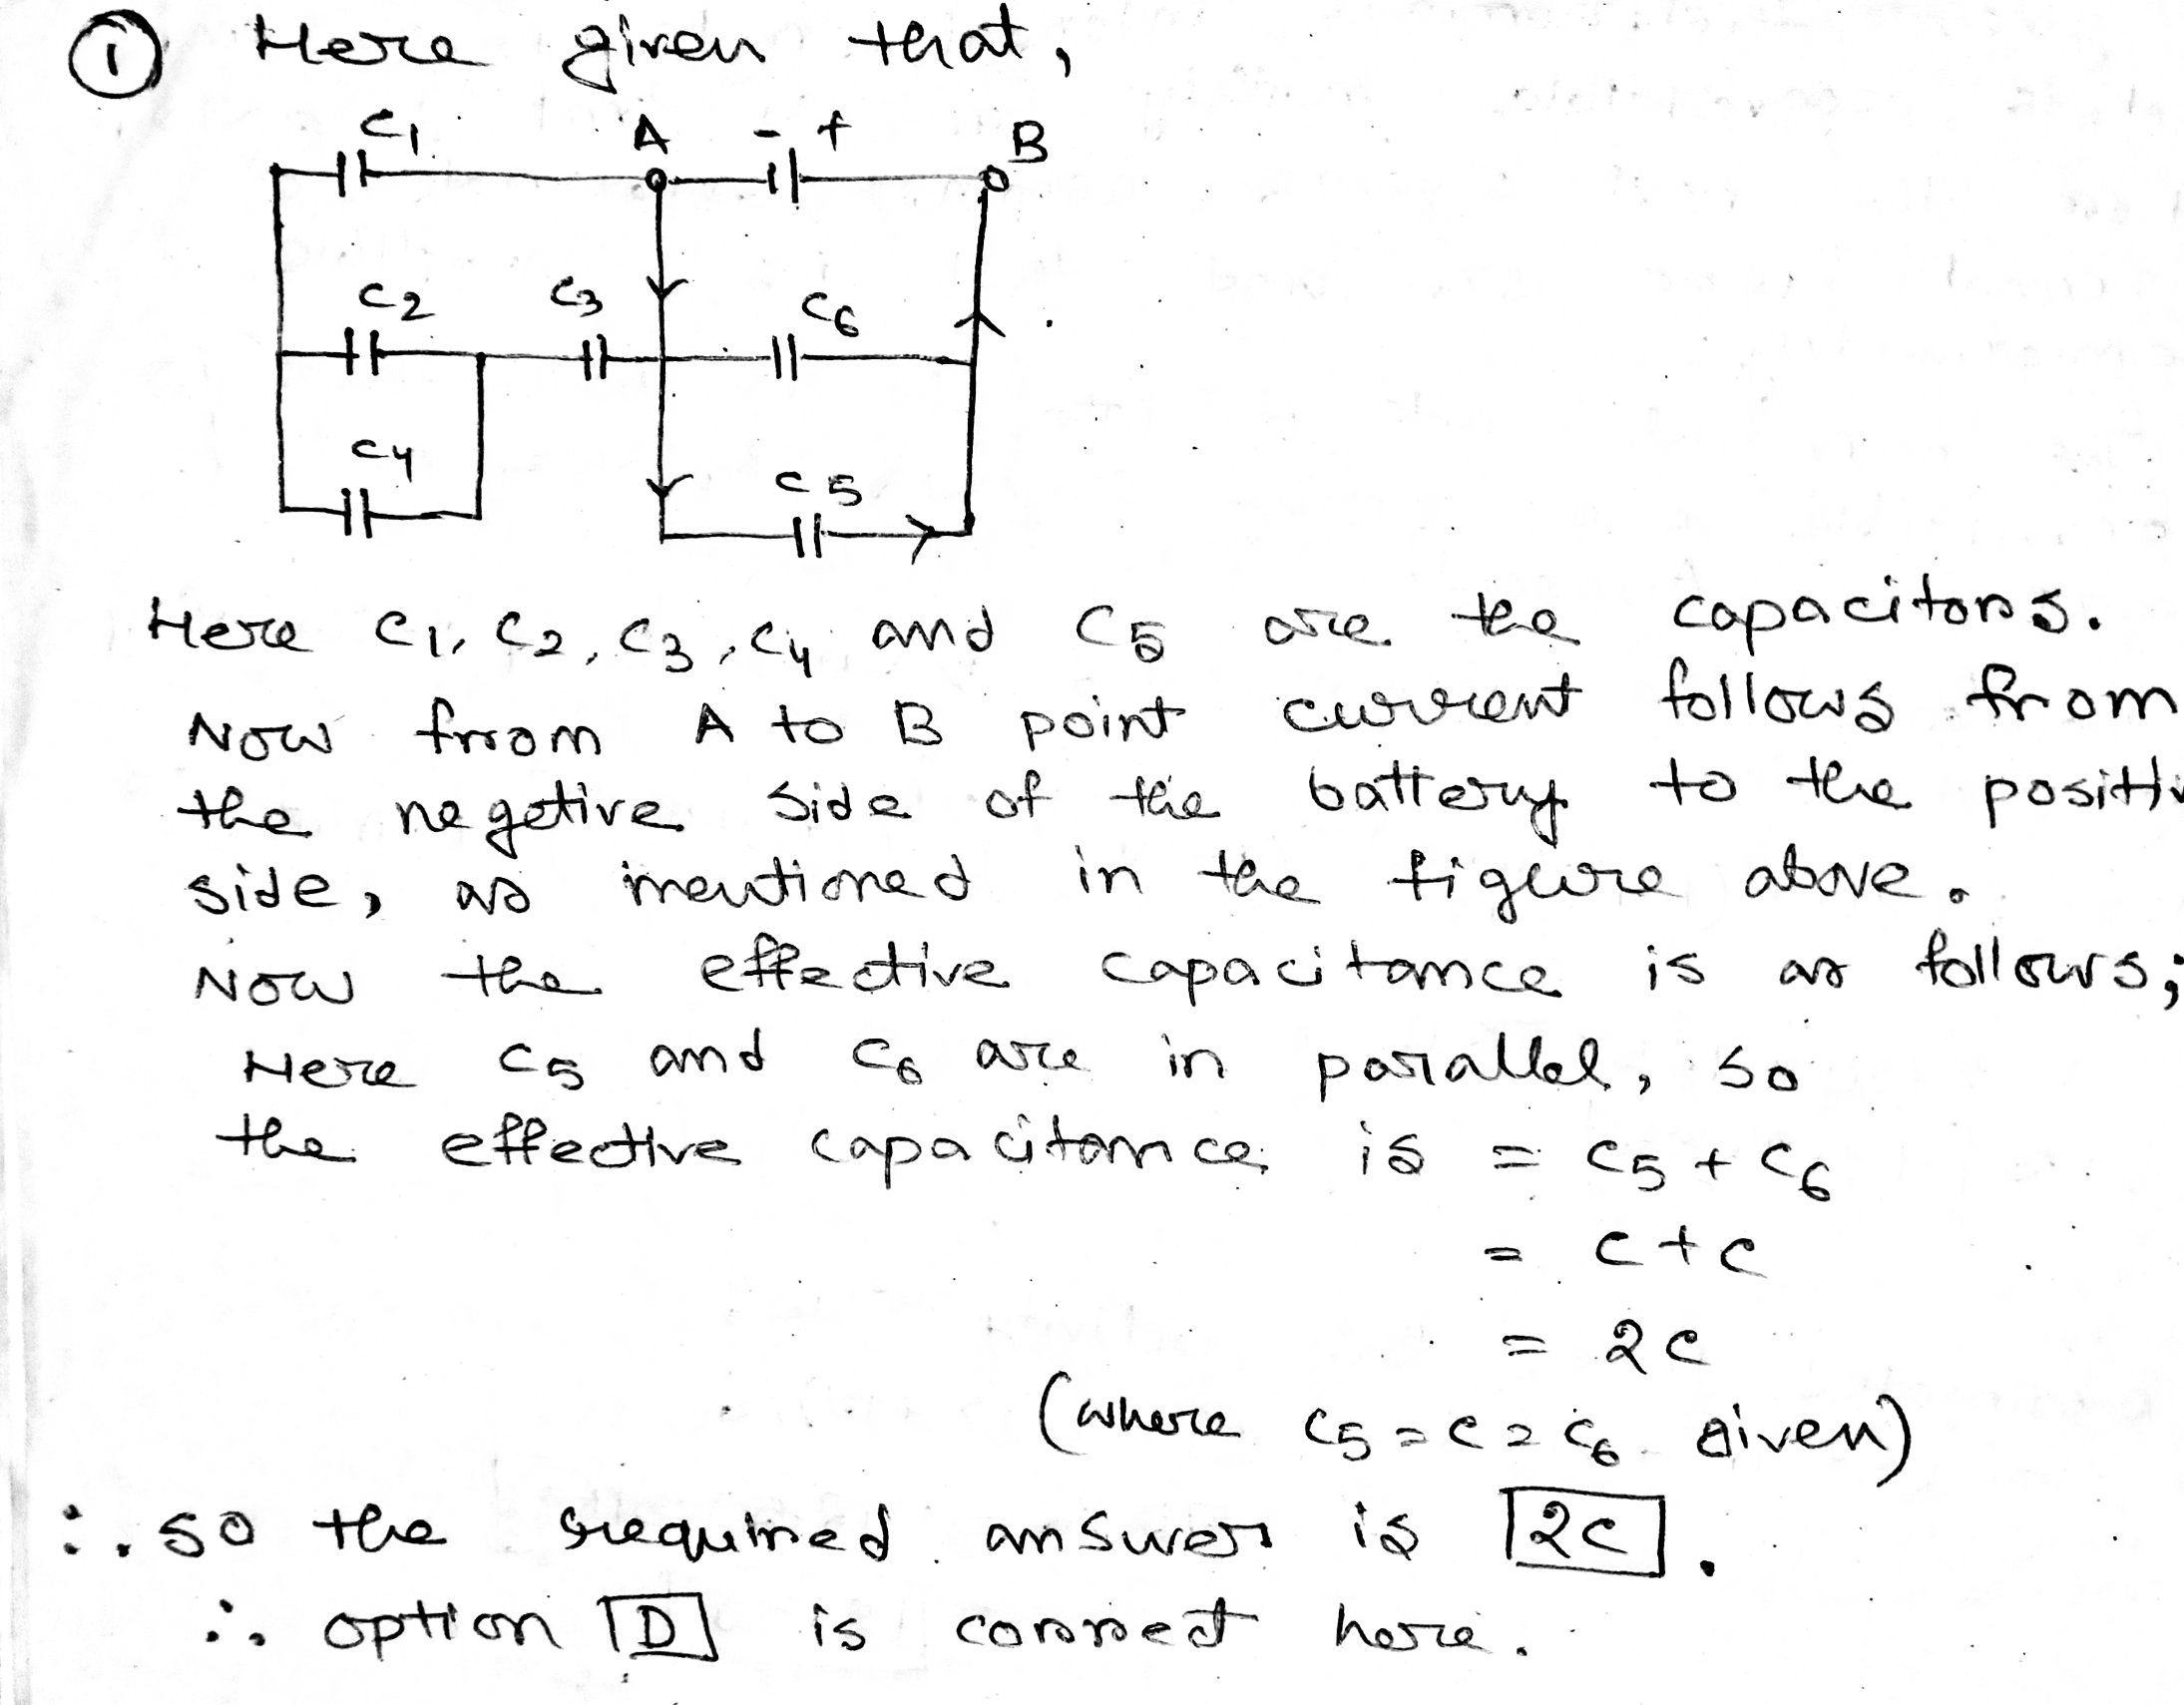 ① Here given that,
C1 A - + B
C2 C3 C6
C4 C5
Here C1, C2, C3, C4 and C5 are the capacitors.
Now from A to B point current follows from
the negetive side of the battery to the positi
side, as mentioned in the figure above.
Now the effective capacitance is as follows;
Here C5 and C6 are in parallel, so
the effective capacitance is = C5 + C6
= C + C
= 2C
(where C5 = C = C6 given)
∴ so the required answer is 2C.
∴ option D is correct here.